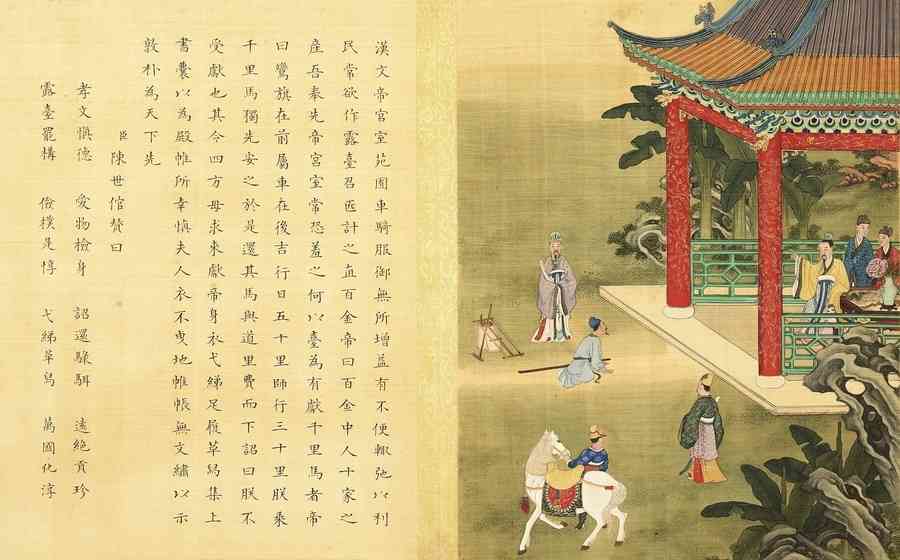 漢文帝宮室苑囿車騎服御無所增益有不便輒弛以利
民常欲作露臺召匠計之直百金帝曰百金中人十家之
產吾奉先帝宮室常恐羞之何以臺為有獻千里馬者帝
曰鸞旗在前屬車在後吉行日五十里師行三十里朕乘
千里馬獨先安之於是還其馬與道里費而下詔曰朕不
受獻也其令四方毋求來獻帝身衣弋綈足履革舄集上
書囊以為殿帷所幸慎夫人衣不曳地帷帳無文繡以示
敦朴為天下先
臣陳世倌贊曰
孝文慎德 愛物檢身 詔還騄駬 遠絕貢珍
露臺罷構 儉樸是惇 弋綈革舄 萬國化淳